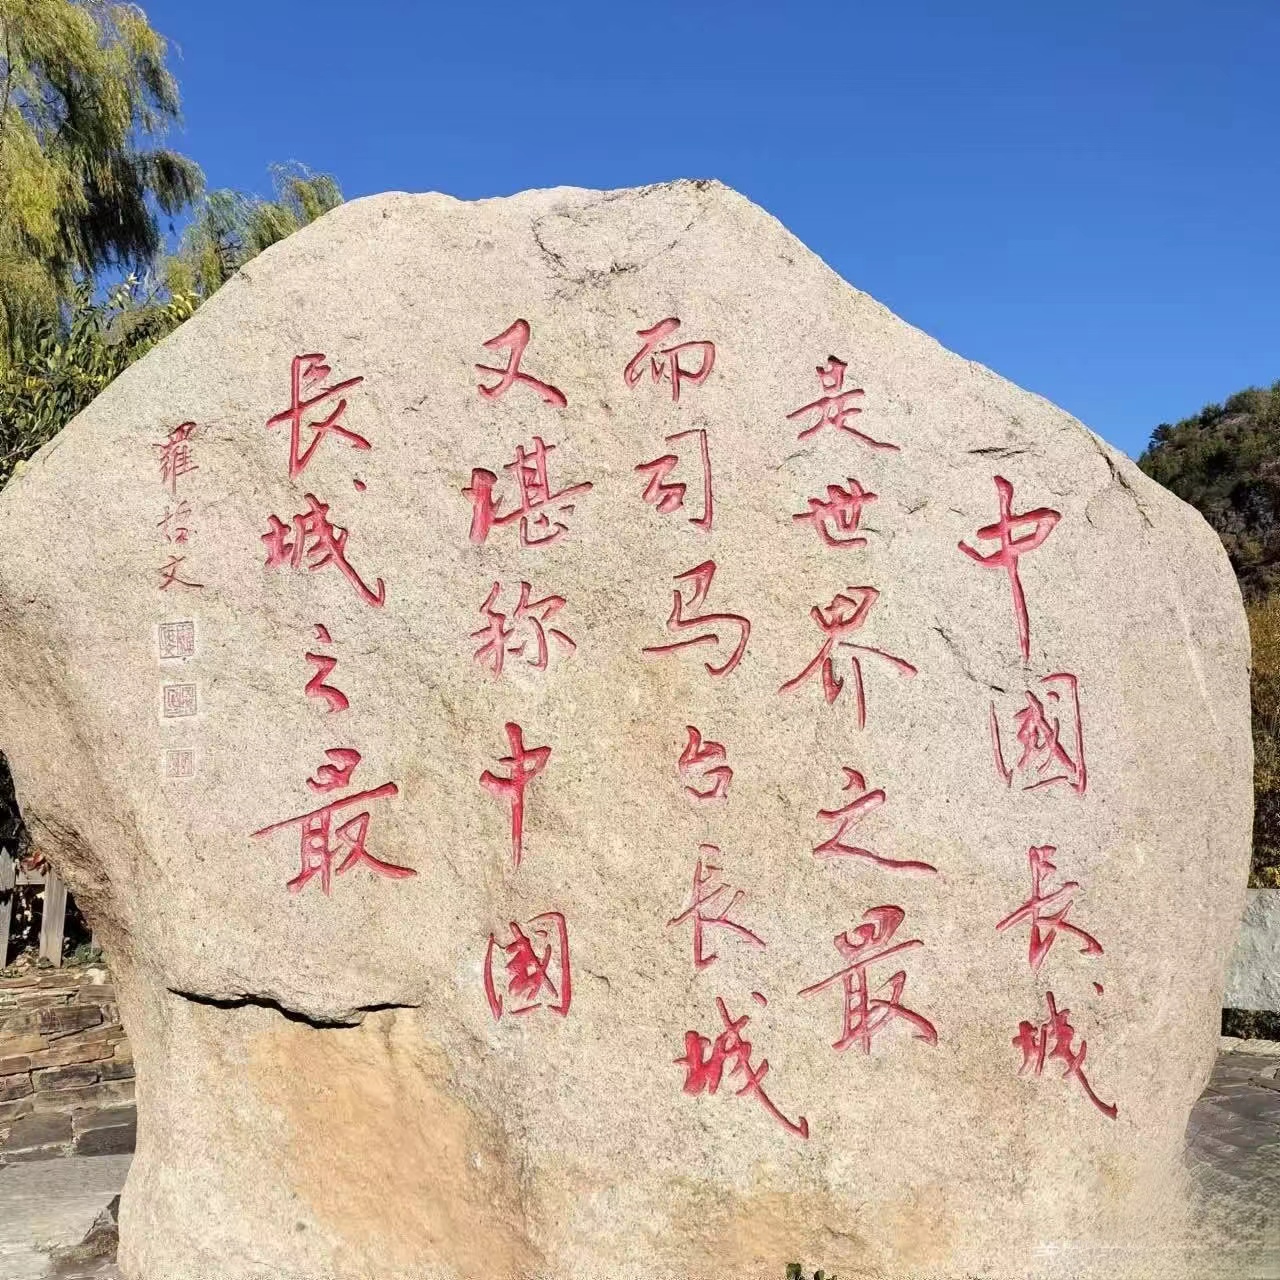 中國長城
是世界之最
而司马台長城
又堪称中國
長城之最
羅哲文